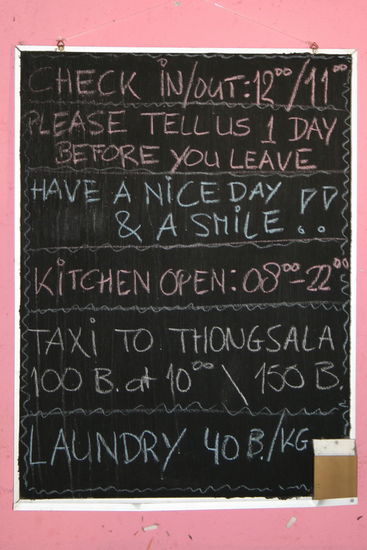 CHECK IN/OUT: 12⁰⁰/11⁰⁰
PLEASE TELL US 1 DAY
BEFORE YOU LEAVE
HAVE A NICE DAY !!
& A SMILE
KITCHEN OPEN: 08⁰⁰-22⁰⁰
TAXI TO THONGSALA
100 B. at 10⁰⁰ \ 150 B.
LAUNDRY 40 B./KG